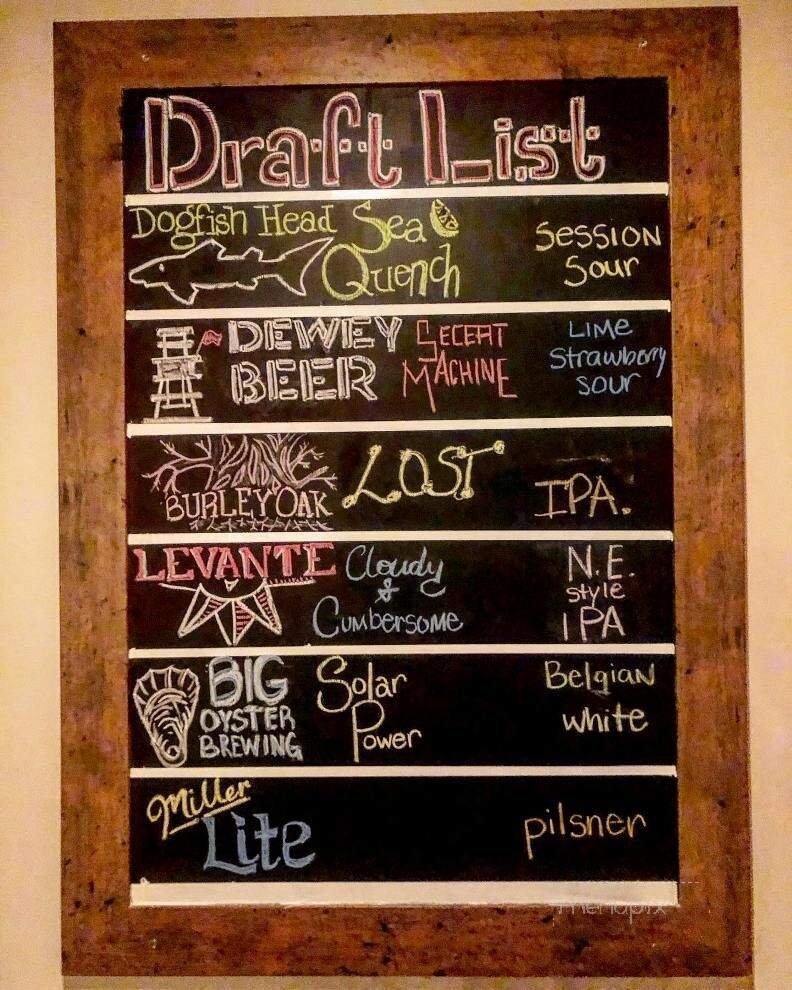 Draft List
Dogfish Head Sea Quench
Session Sour
DEWEY BEER
SECERT MACHINE
LIME Strawberry sour
BURLEY OAK
LOST
IPA.
LEVANTE
Cloudy & Cumbersome
N.E. style IPA
BIG OYSTER BREWING
Solar Power
Belgian white
Miller Lite
pilsner
menupix